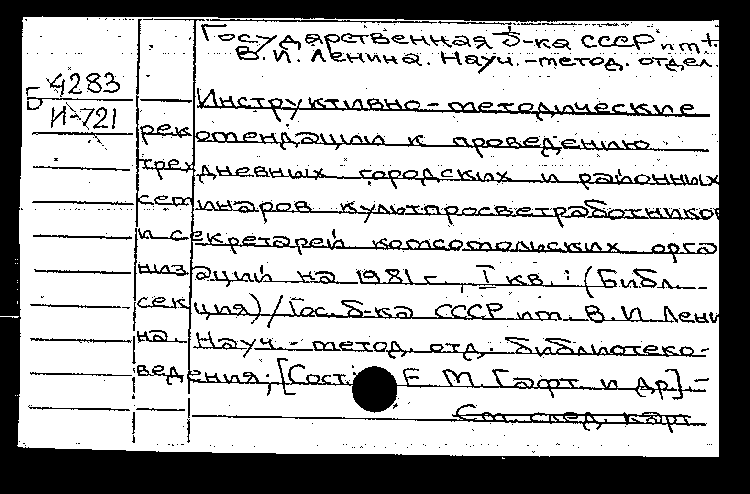 Государственная б-ка СССР им.
В.И. Ленина. Науч.-метод. отдел.
Б 4283
И-721
Инструктивно-методические
рекомендации к проведению
трехдневных городских и районных
семинаров культпросветработников
и секретарей комсомольских орга
низаций на 1981 г., I кв.: (Библ.
секция) / Гос. б-ка СССР им. В.И. Лени
на. Науч.-метод. отд. библиотеко-
ведения; [Сост. Е М Гафт и др]. –
См. след. карт